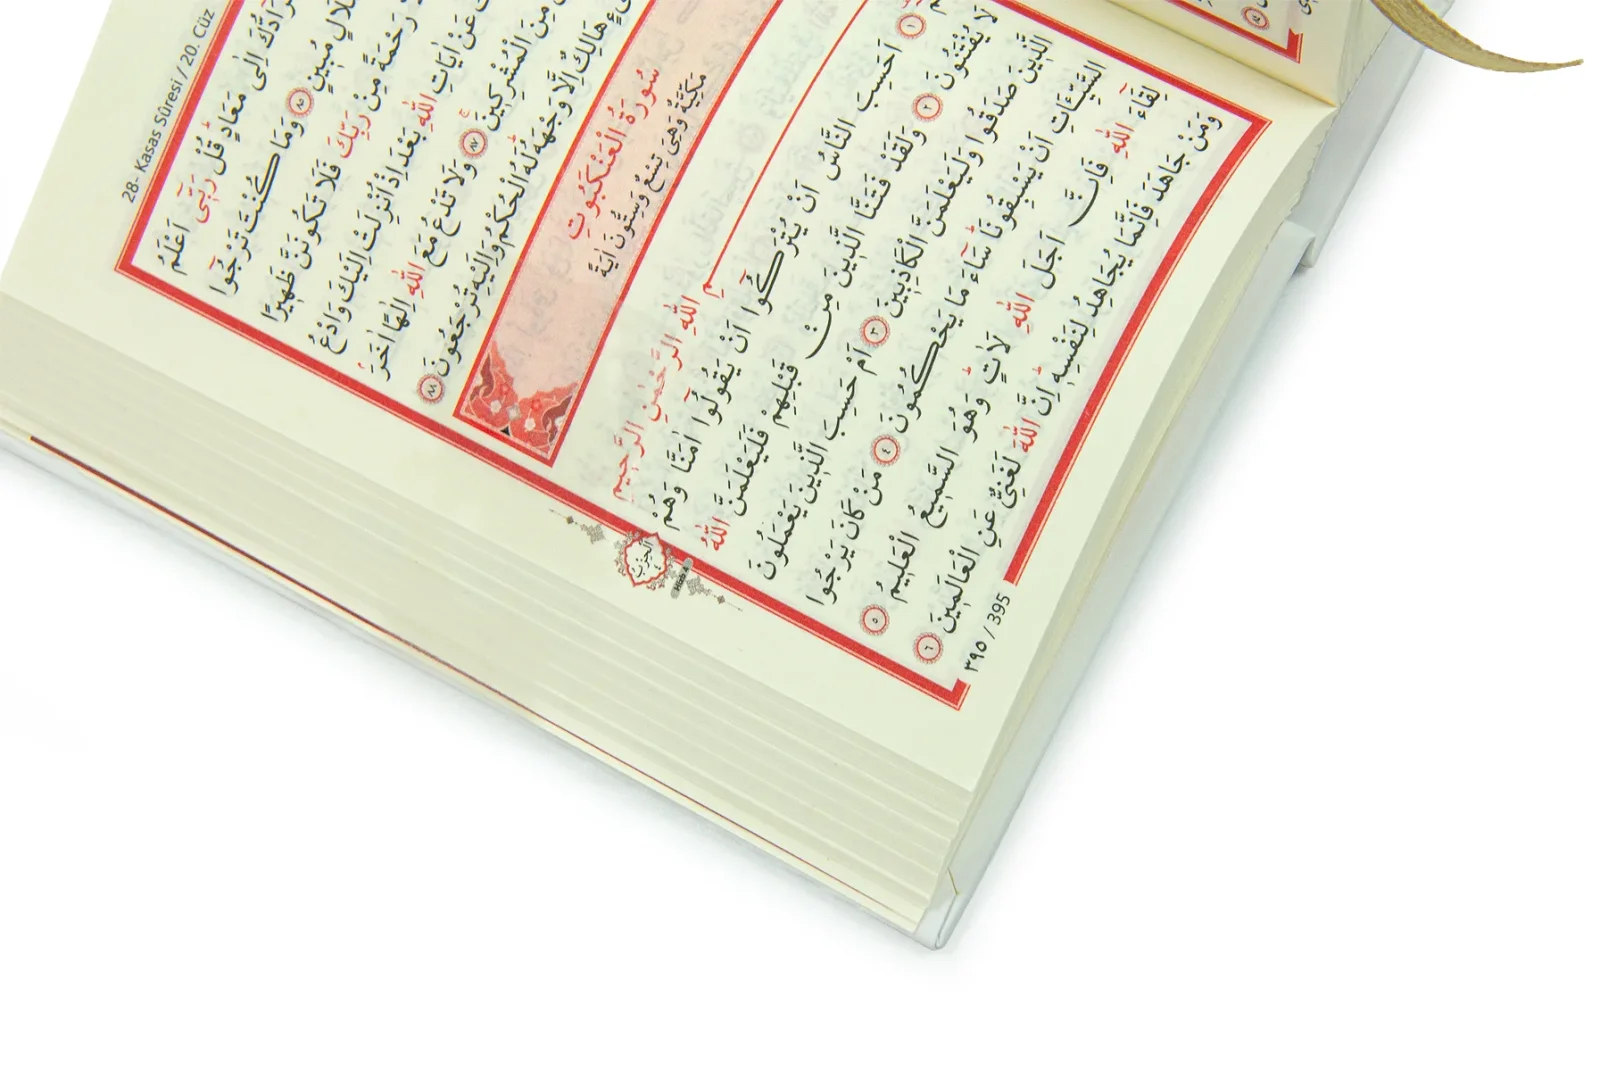 28- Kasas Sûresi / 20. Cüz
رَٓادُّكَ اِلٰى مَعَادٍۜ قُلْ رَبّ۪ٓي اَعْلَمُ
مُب۪ينٍ ﴿٨٥﴾ وَمَا كُنْتَ تَرْجُٓوا
رَحْمَةً مِنْ رَبِّكَ فَلَا تَكُونَنَّ ظَه۪يرًا
عَنْ اٰيَاتِ اللّٰهِ بَعْدَ اِذْ اُنْزِلَتْ اِلَيْكَ وَادْعُ
مِنَ الْمُشْرِك۪ينَۚ ﴿٨٧﴾ وَلَا تَدْعُ مَعَ اللّٰهِ اِلٰهًا اٰخَرَۢ
هَالِكٌ اِلَّا وَجْهَهُۜ لَهُ الْحُكْمُ وَاِلَيْهِ تُرْجَعُونَ ﴿٨٨﴾
سُورَةُ الْعَنْكَبُوتِ
مَكِّيَّةٌ وَهِيَ تِسْعٌ وَسِتُّونَ اٰيَةً
اللّٰهِ الرَّحْمٰنِ الرَّح۪يمِ
﴿١﴾ اَحَسِبَ النَّاسُ اَنْ يُتْرَكُٓوا اَنْ يَقُولُٓوا اٰمَنَّا وَهُمْ
لَا يُفْتَنُونَ ﴿٢﴾ وَلَقَدْ فَتَنَّا الَّذ۪ينَ مِنْ قَبْلِهِمْ فَلَيَعْلَمَنَّ اللّٰهُ
الَّذ۪ينَ صَدَقُوا وَلَيَعْلَمَنَّ الْكَاذِب۪ينَ ﴿٣﴾ اَمْ حَسِبَ الَّذ۪ينَ يَعْمَلُونَ
السَّيِّـَٔاتِ اَنْ يَسْبِقُونَاۜ سَٓاءَ مَا يَحْكُمُونَ ﴿٤﴾ مَنْ كَانَ يَرْجُوا
لِقَٓاءَ اللّٰهِ فَاِنَّ اَجَلَ اللّٰهِ لَاٰتٍۜ وَهُوَ السَّم۪يعُ الْعَل۪يمُ ﴿٥﴾
وَمَنْ جَاهَدَ فَاِنَّمَا يُجَاهِدُ لِنَفْسِه۪ۜ اِنَّ اللّٰهَ لَغَنِيٌّ عَنِ الْعَالَم۪ينَ ﴿٦﴾
الْحِزْبُ ٤
Hizb 4
٣٩٥ / 395